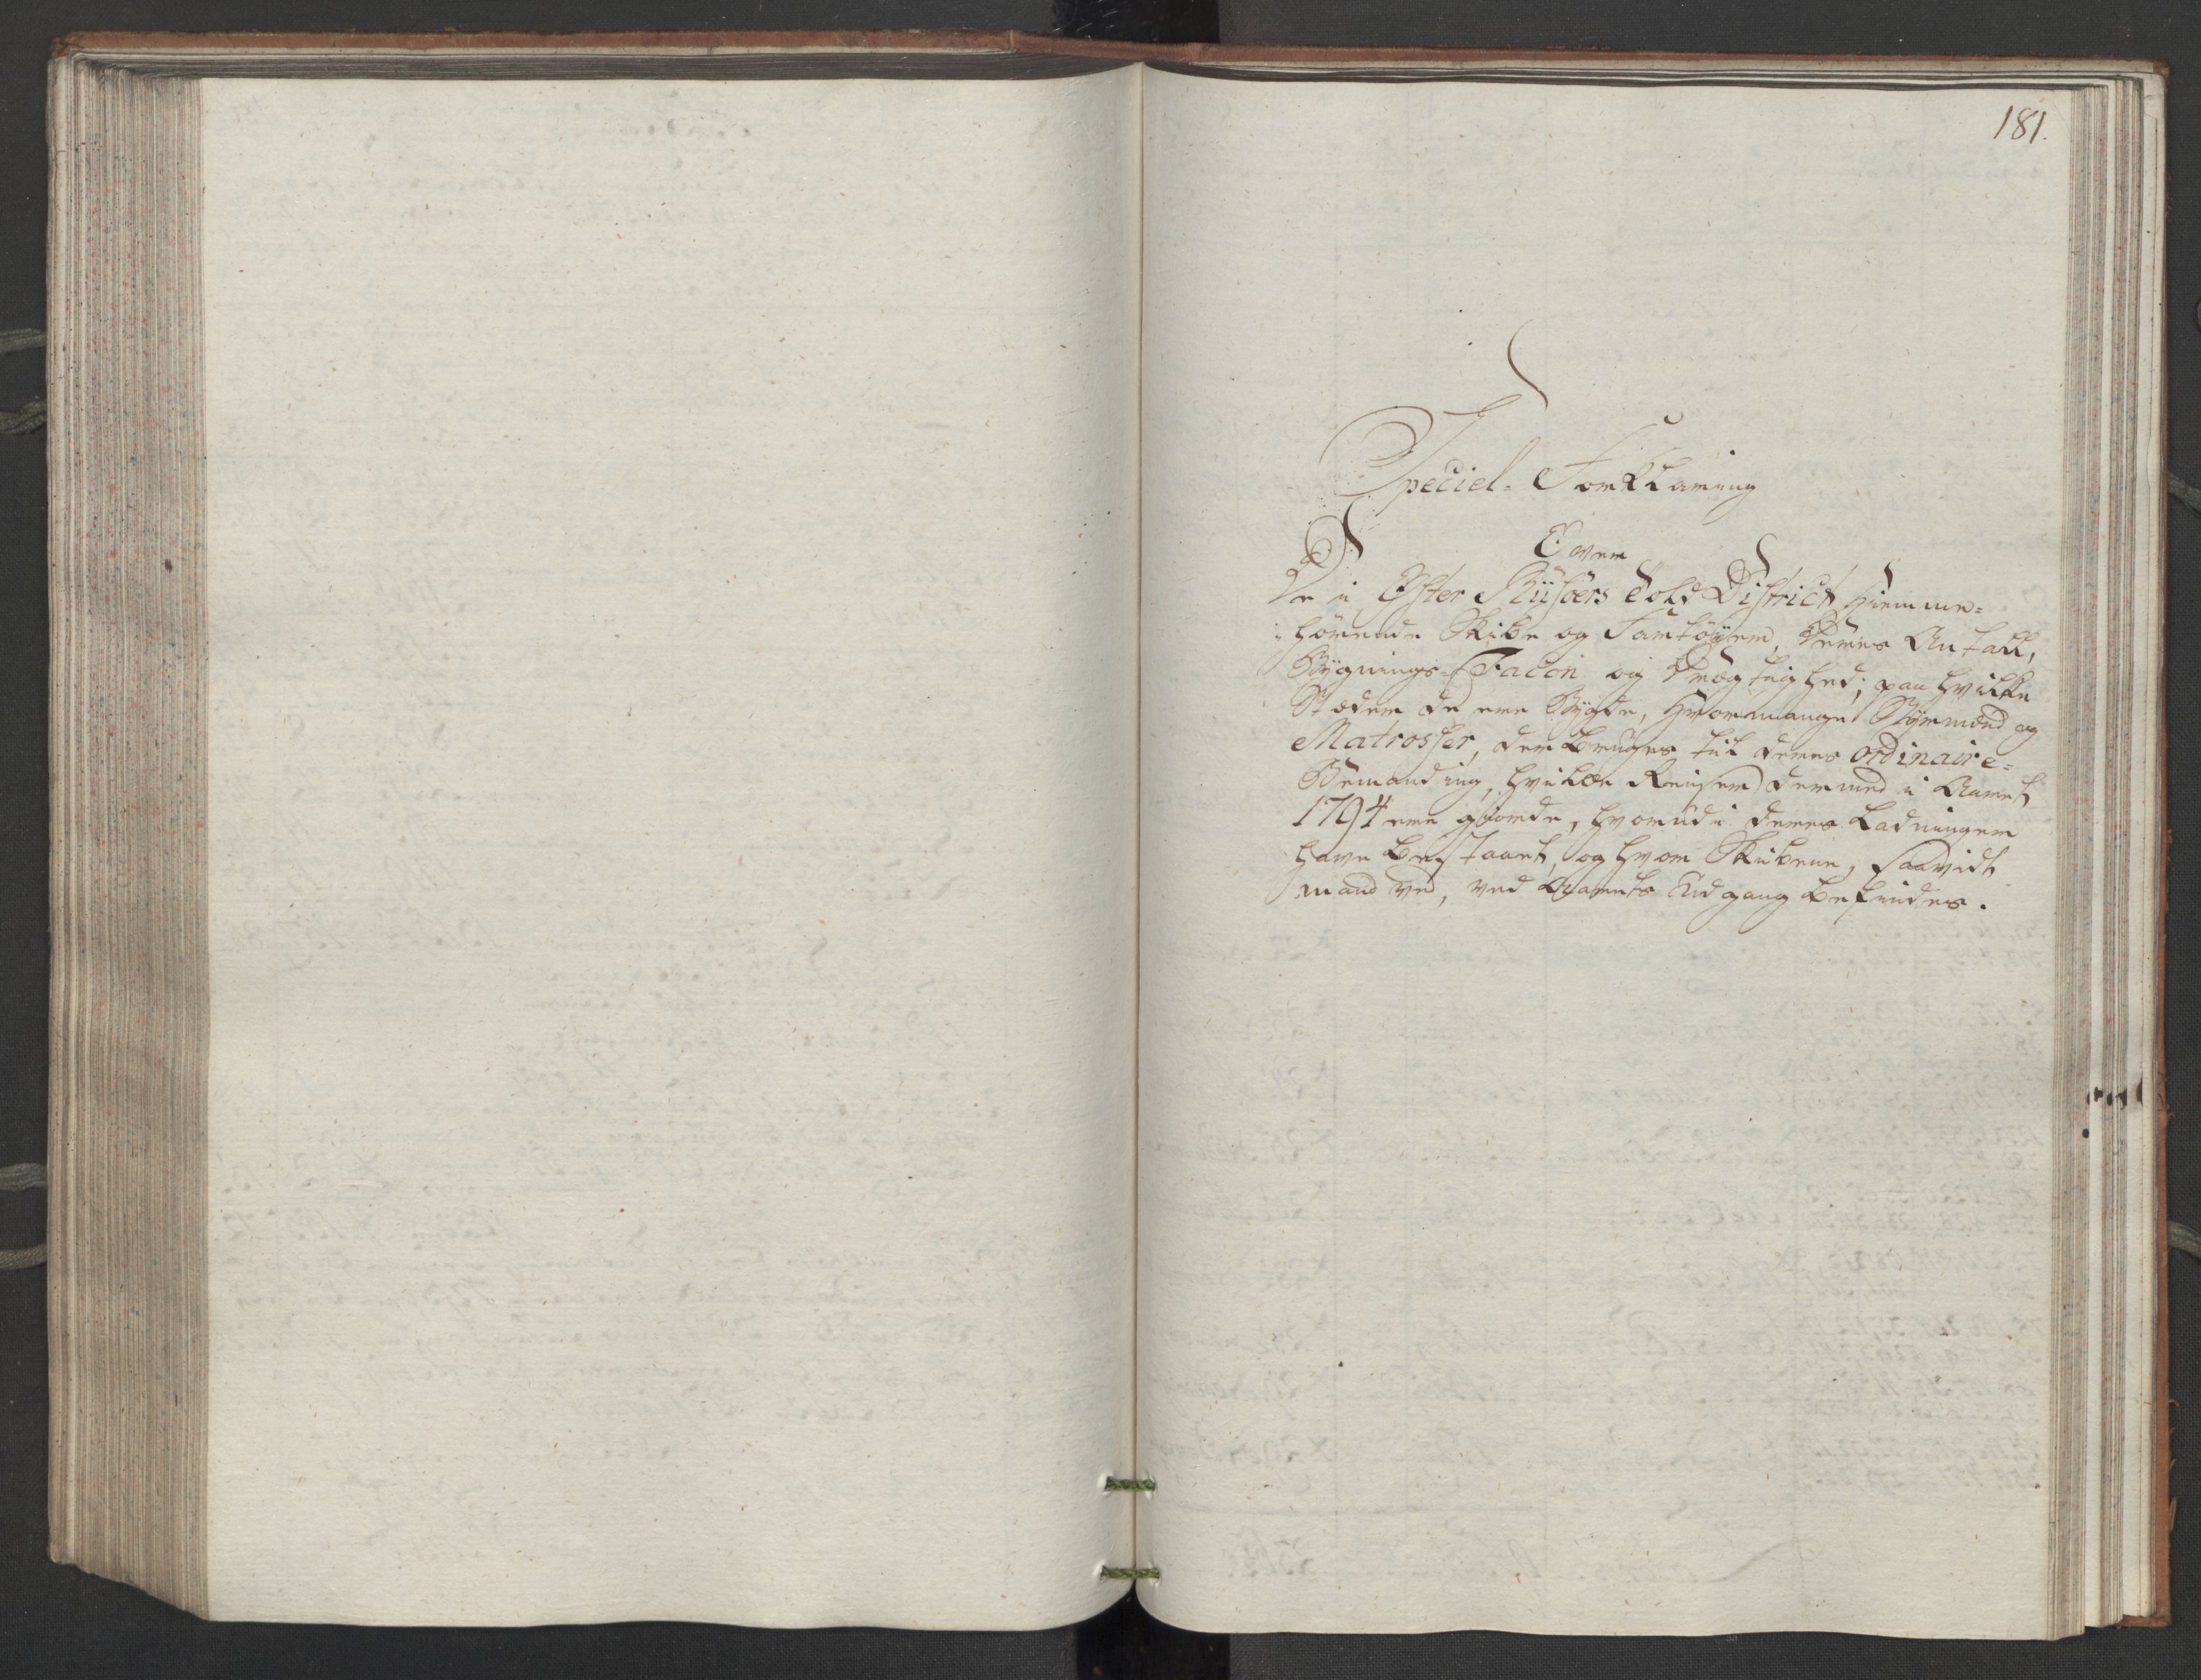 181.
Speciel- Forklaring
Over
De i Øster Riisöers Told District hiemme=
hørende Skibe og Fartöyer, deres Antall,
Bygnings-Facon og Drægtighed; paa hvilke
Stæder de ere Bygde, hvormange Styrmænd og
Matrosser, der bruges til deres ordinaire=
Bemanding, hvilke Reiser dermed i Aaret
1794 ere giorde, hvorudi deres Ladninger
have bestaaet, og hvor Skibene, saavidt
mand ved, ved Aarets Udgang befindes.